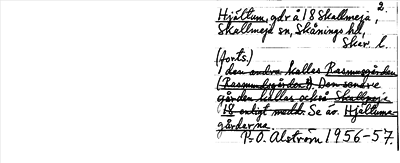 2.
Hjältum, gdr å 18 Skallmeja,
Skallmeja sn, Skånings hd,
Skar. l.
(forts.)
den andra kallas Rasmusgården
(Rasmundsgården?). Den senare
gården kallas också Skallmeja
18 enligt medd. Se äv. Hjältuma-
gårdarna.
P.O. Alström 1956-57.